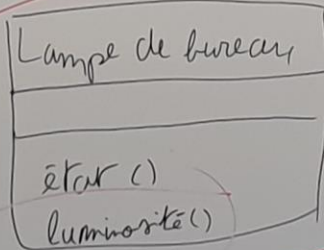 Lampe de bureau
état ()
luminosité()